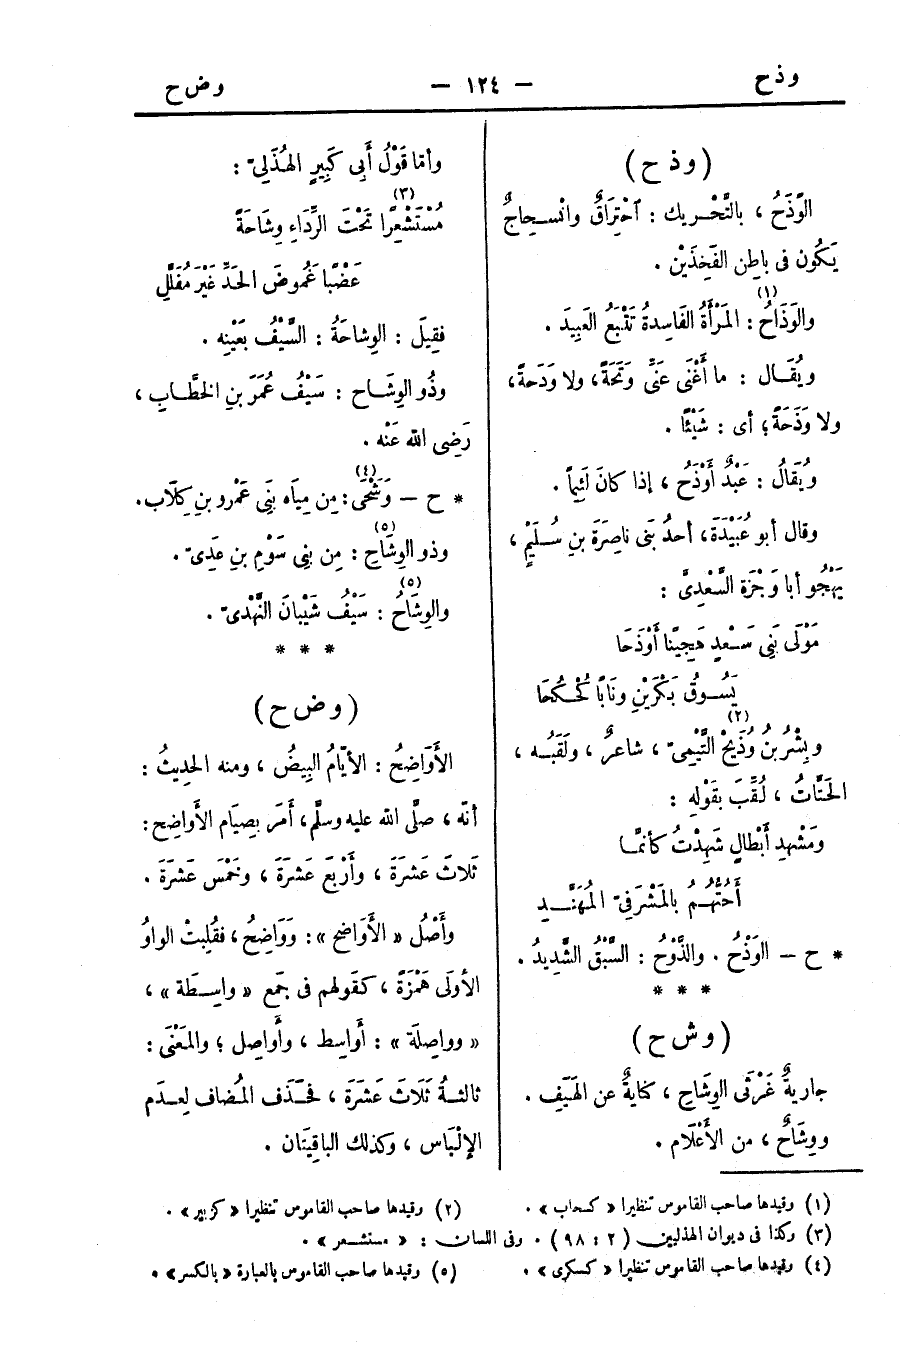 وذح
— ١٢٤ —
وضح
(وذح)
الوَذَحُ ، بالتَّحْرِيك : اَحْتِراقٌ وانْسِحاجٌ
يَكُون فى باطِن الفَخِذَيْن .
والوَذَاحُ(١) : المَرْأَةُ الفَاسِدةُ تَتْبَعُ العَبِيدَ .
ويُقَال : ما أَغْنَى عَنِّى وَتَحَةً ، ولا وَدَحةً ،
ولا وَذَحَةً ؛ أى : شَيْئًا .
ويُقَالُ : عَبْدٌ أَوْذَحُ ، إذا كانَ لَئِيماً .
وقال أبو عُبَيْدَة ، أحدُ بَنى ناصِرَةَ بنِ سُلَيْمٍ ،
يَهْجُو أبا وَجْزَة السَّعْدِىَّ :
مَوْلَى بَنِي سَعْدٍ هَجِينًا أَوْذَحَا
يَسُوقُ بَكْرَيْنِ ونَابًا كُحْكُحَا
وبِشْرُ بنُ وُذَيْحٍ(٢) التَّيْمِىّ ، شاعرٌ ، ولَقَبُه ،
الحَتَّاتُ ، لُقِّبَ بقَولهِ :
ومَشْهدِ أَبْطالٍ شَهِدْتُ كأنمَّا
أَحُتُّهُمُ بالمَشْرَفِىّ المُهَنَّدِ
* ح — الوَذْحُ . والذَّوْحُ : السَّبْقُ الشَّدِيدُ .
* * *
(وشح)
جاريةٌ غَرْثَى الوِشَاحِ ، كنايةٌ عن الهَيَفِ .
ووِشَاحٌ ، من الأَعْلَام .
وأمّا قَوْلُ أَبِى كَبِيرٍ الهُذَلِىّ :
مُسْتَشْعِرًا(٣) تَحْتَ الرِّدَاءِ وِشَاحَةً
عَضْبًا غَمُوضَ الحَدِّ غَيْرَ مُفَلَّلِ
فقِيلَ : الوِشاحَةُ : السَّيْفُ بعَيْنِه .
وذُو الوِشَاح : سَيْفُ عُمَرَ بنِ الخطَّابِ ،
رَضِى الله عَنْه .
* ح — وَشْحَى(٤) : مِن مِيَاه بَنِى عَمْرو بنِ كِلَاب .
وذو الوِشَاحِ(٥) : مِن بني سَوْمِ بنِ عَدِىّ .
والوِشَاحُ(٥) : سَيْفُ شَيْبانَ النَّهْدِىّ .
* * *
(وضح)
الأَوَاضِحُ : الأيّامُ البِيضُ ، ومنه الحَدِيثُ :
أنّه ، صلَّى الله عليه وسلَّم ، أَمَر بصِيَام الأَواضِح :
ثَلاثَ عَشرَةَ ، وأَرْبَعَ عَشرَةَ ، وخَمْسَ عَشرَةَ .
وأَصْلُ « الأَوَاضح » : وَوَاضِحُ ، فقُلِبتْ الواوُ
الأولَى هَمْزَةً ، كقَولهم فى جَمع « واسِطَة » ،
« وواصِلَة » : أَواسِط ، وأَواصِل ؛ والمَعْنَى :
ثالثةُ ثَلَاثَ عَشرَةَ ، فحَذَف المُضاف لِعدَم
الإلْبَاس ، وكذلك الباقِيَتَان .
(١) وقيدها صاحب القاموس تنظيرا « كسحاب » .
(٢) وقيدها صاحب القاموس تنظيرا « كزبير » .
(٣) وكذا فى ديوان الهذليين (٢ : ٩٨) . وفى اللسان : « مستشعر » .
(٤) وقيدها صاحب القاموس تنظيرا « كسكرى » .
(٥) وقيدها صاحب القاموس بالعبارة « بالكسر » .